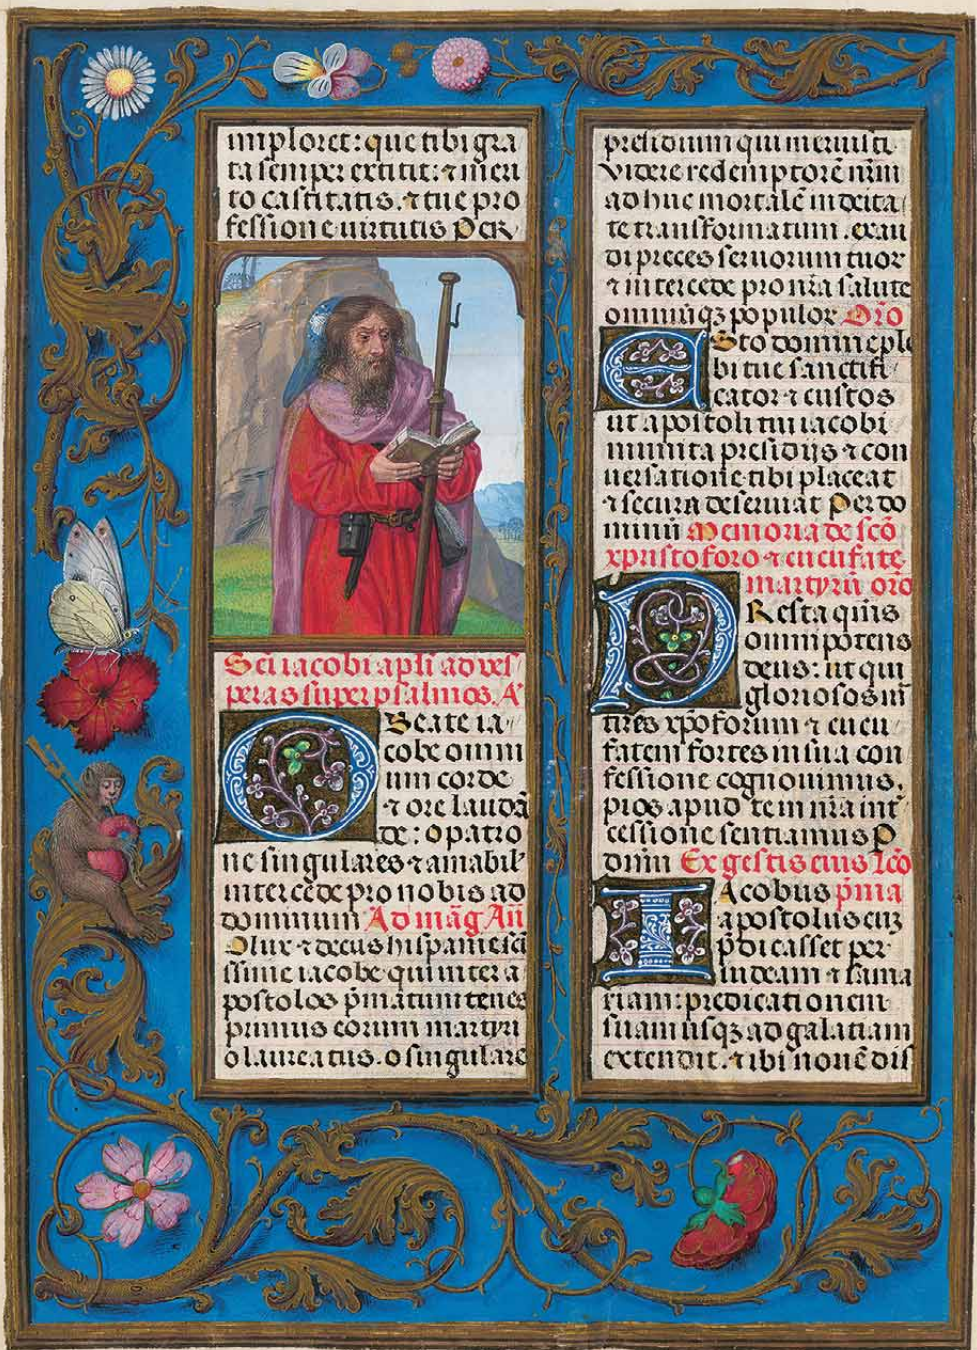 imploret: que tibi gra
ta semper extitit: ⁊ meri
to castitatis. ⁊ tue pro
fessione uirtutis Per
Sci iacobi apli ad ves
peras super psalmos. A
O Beate ia
cobe omni
um corde
⁊ ore laudā
de: o patro
ne singulares ⁊ amabil
intercede pro nobis ad
dominum Ad mag̃ Añ
O lux ⁊ decus hispanie sci
ssime iacobe qui inter a
postolos p̃matum tenes
primus eorum martyri
o laureatus. o singulare
presidium qui meruisti
videre redemptorē nr̄m
adhuc mortalē in deita
te transformatum. exau
di preces seruorum tuor
⁊ intercede pro nr̄a salute
omniūqꝫ populor Orō
Esto domine ple
bi tue sanctifi
cator ⁊ custos
ut apostoli tui iacobi
munita presidijs ⁊ con
uersatione tibi placeat
⁊ secura deseruiat Per do
minū Memoria de scō
xpistoforo ⁊ cucufate
martyrū orō
PResta q̄us
omnipotens
deus: ut qui
gloriosos m̄
tires xp̄oforum ⁊ cucu
fatem fortes in sua con
fessione cognouimus,
pios apud te in nr̄a int̄
cessione sentiamus P
dnm̄ Ex gestis eius lcō
IAcobus p̄ma
apostolus cuꝫ
p̄dicasset per
iudeam ⁊ sama
riam: predicationem
suam usqꝫ ad galatiam
extendit. ⁊ ibi nouē dis